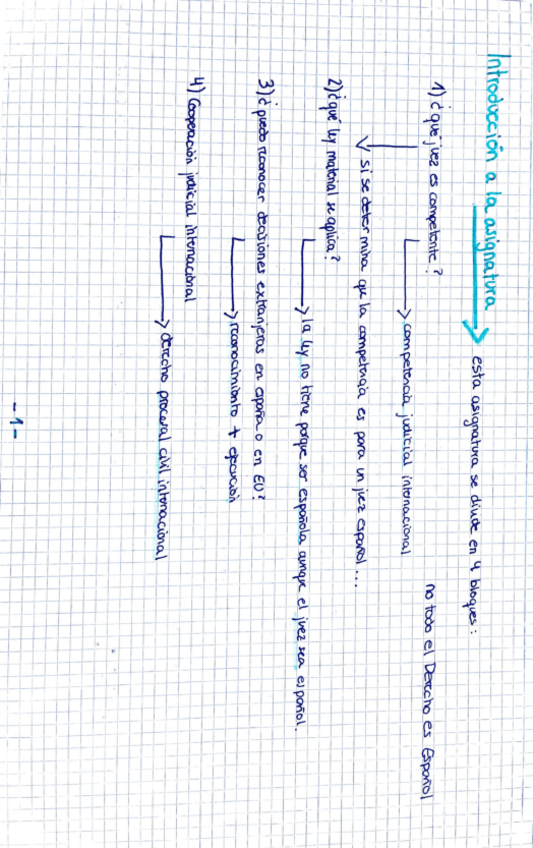 Introducción a la asignatura
esta asignatura se divide en 4 bloques:
1) ¿qué juez es competente?
no todo el Derecho es Español
competencia judicial internacional
si se determina que la competencia es para un juez español...
2) ¿qué ley material se aplica?
la ley no tiene porque ser española aunque el juez sea español.
3) ¿puedo reconocer decisiones extranjeras en españa o en EU?
reconocimiento + ejecución
4) Cooperación judicial internacional
derecho procesal civil internacional
-1-